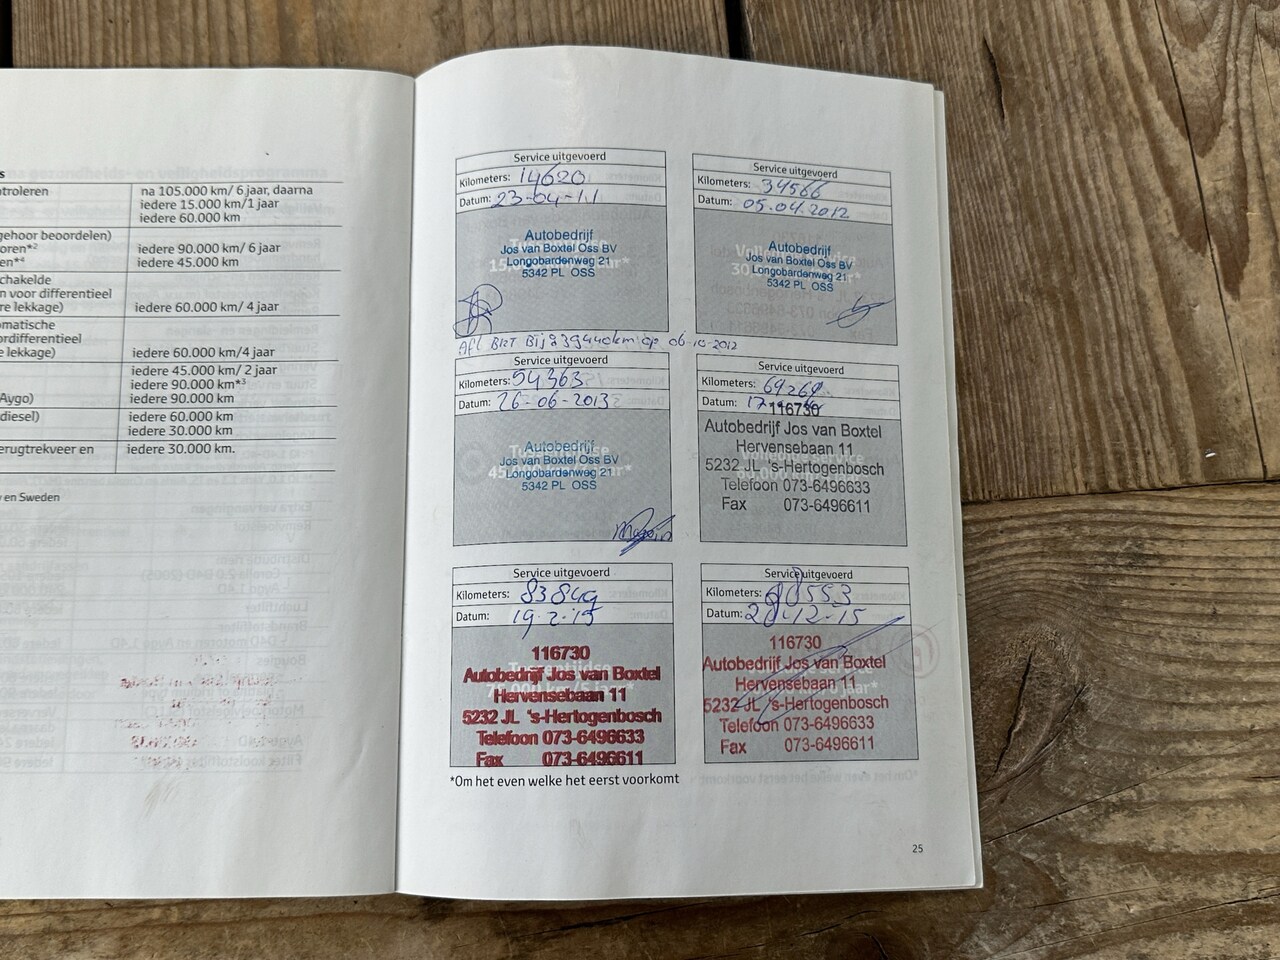 s
ntroleren
na 105.000 km/ 6 jaar, daarna
iedere 15.000 km/1 jaar
iedere 60.000 km
gehoor beoordelen)
oren*2
iedere 90.000 km/ 6 jaar
en*4
iedere 45.000 km
chakelde
n voor differentieel
e lekkage)
iedere 60.000 km/ 4 jaar
omatische
ordifferentieel
e lekkage)
iedere 60.000 km/4 jaar
iedere 45.000 km/ 2 jaar
iedere 90.000 km*3
Aygo)
iedere 90.000 km
diesel)
iedere 60.000 km
iedere 30.000 km
erugtrekveer en
iedere 30.000 km.
en Sweden
Service uitgevoerd
Kilometers: 14620
Datum: 23-04-11
Autobedrijf
Jos van Boxtel Oss BV
Longobardenweg 21
5342 PL OSS
Service uitgevoerd
Kilometers: 34566
Datum: 05.04.2012
Autobedrijf
Jos van Boxtel Oss BV
Longobardenweg 21
5342 PL OSS
op 06-10-2012
Service uitgevoerd
Kilometers: 54363
Datum: 26-06-2013
Autobedrijf
Jos van Boxtel Oss BV
Longobardenweg 21
5342 PL OSS
Service uitgevoerd
Kilometers:
Datum:
116730
Autobedrijf Jos van Boxtel
Hervensebaan 11
5232 JL 's-Hertogenbosch
Telefoon 073-6496633
Fax 073-6496611
Service uitgevoerd
Kilometers: 83849
Datum: 19-2-15
116730
Autobedrijf Jos van Boxtel
Hervensebaan 11
5232 JL 's-Hertogenbosch
Telefoon 073-6496633
Fax 073-6496611
Service uitgevoerd
Kilometers: 98553
Datum: 28-12-15
116730
Autobedrijf Jos van Boxtel
Hervensebaan 11
5232 JL 's-Hertogenbosch
Telefoon 073-6496633
Fax 073-6496611
*Om het even welke het eerst voorkomt
25